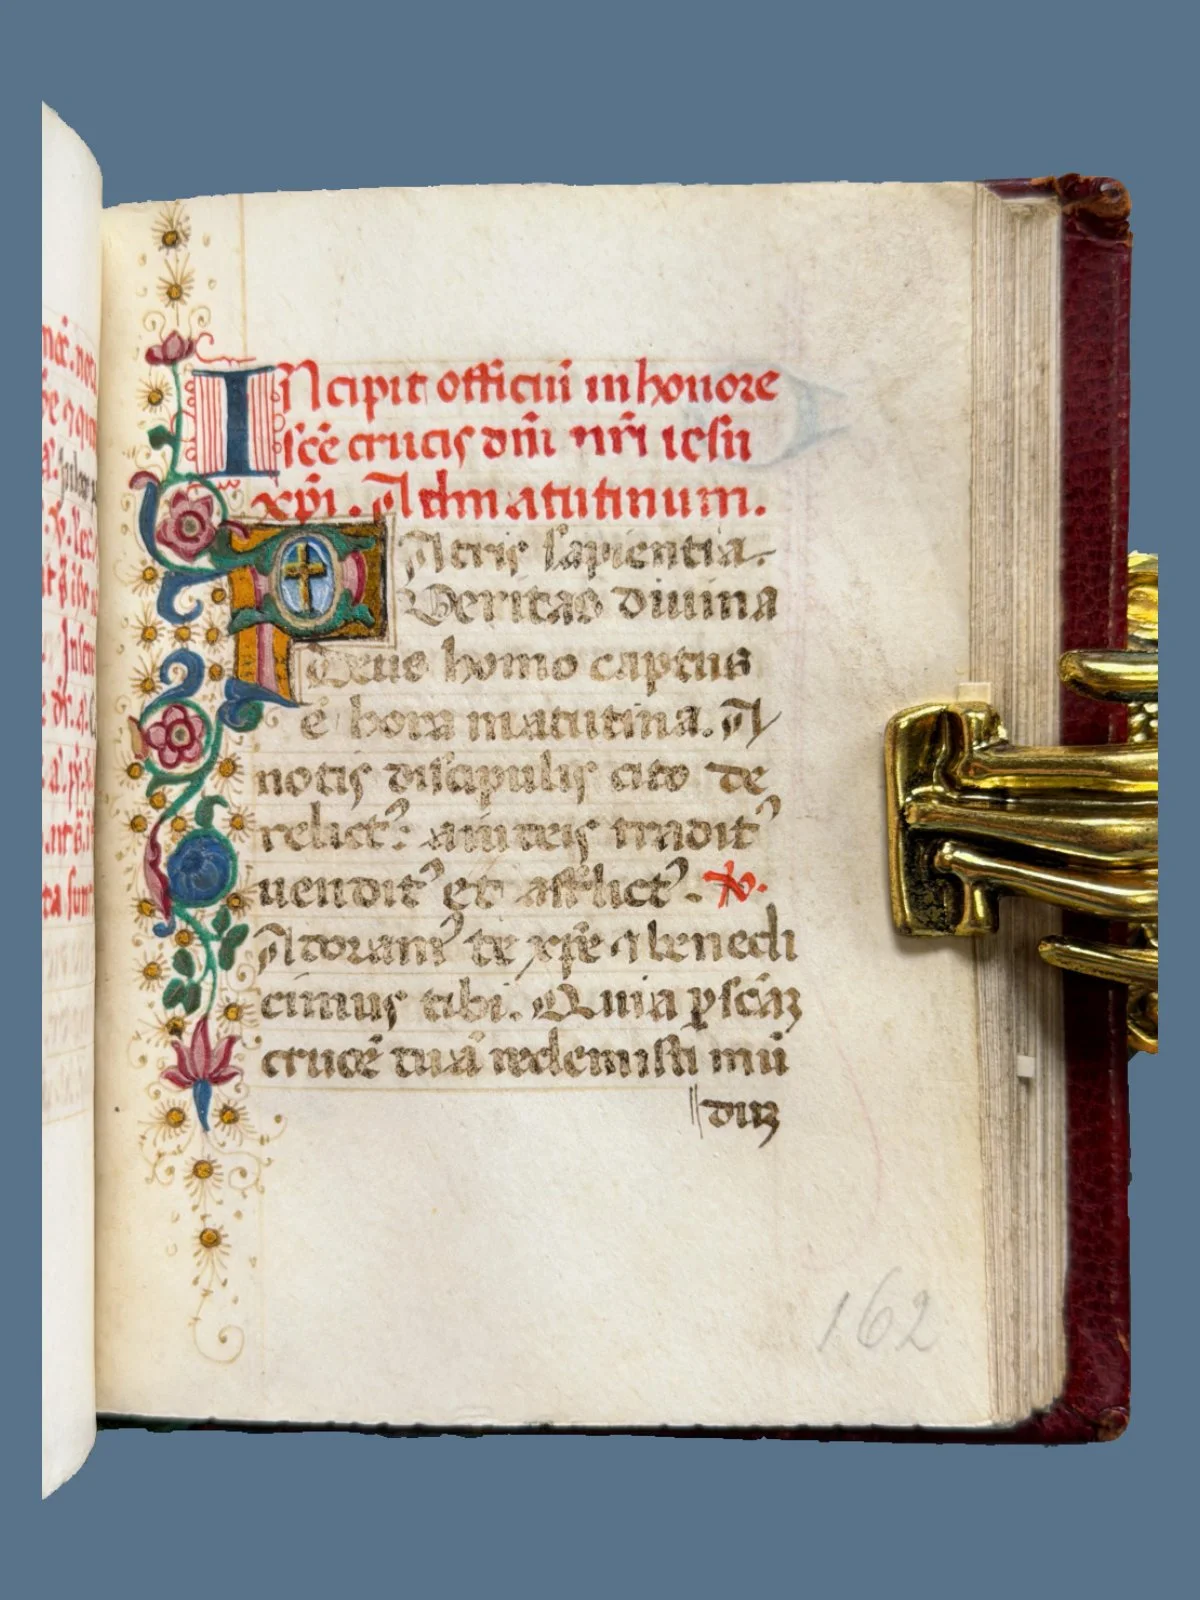 INcipit officiū in honore
scē crucis dn̄i nr̄i iesu
xp̄i. Ad matutinum.
PAtris sapientia.
Veritas diuina
Deus homo captus
ē hora matutina. A
notis discipulis cito de
relictꝰ: a iudeis traditꝰ
uenditꝰ et afflictꝰ. ℣.
Adoramꝰ te xp̄e ⁊ benedi
cimus tibi. Quia ꝑ scāꝫ
crucē tuā redemisti mū
duꝫ
162